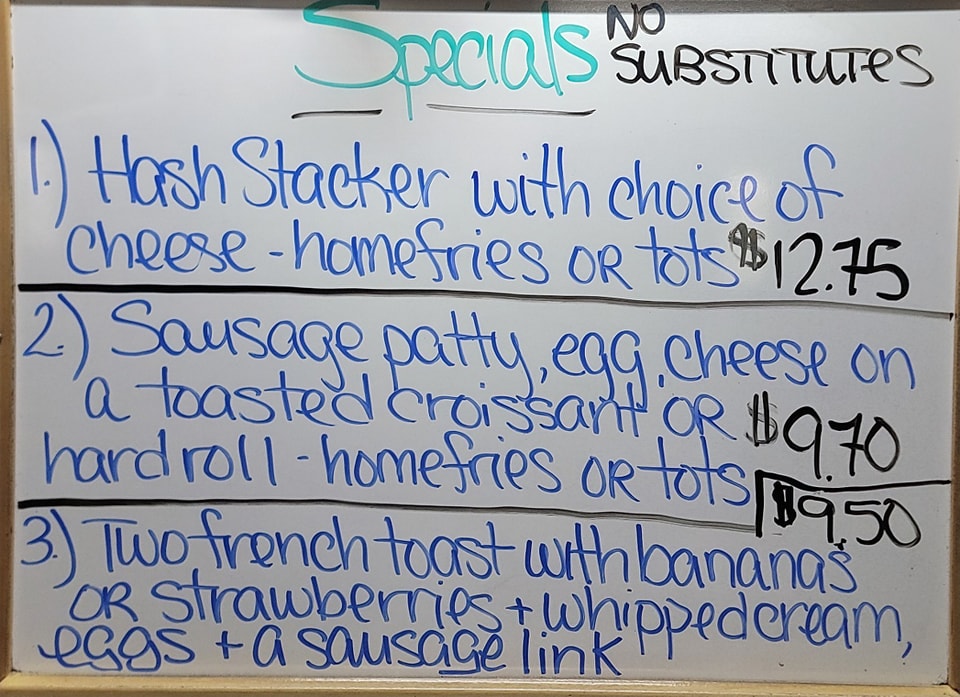 Specials NO SUBSTITUTES
1.) Hash Stacker with choice of
cheese - homefries OR tots $12.75
2.) Sausage patty, egg, cheese on
a toasted croissant OR $9.70
hard roll - homefries OR tots
$9.50
3.) Two french toast with bananas
OR strawberries + whipped cream,
eggs + a sausage link